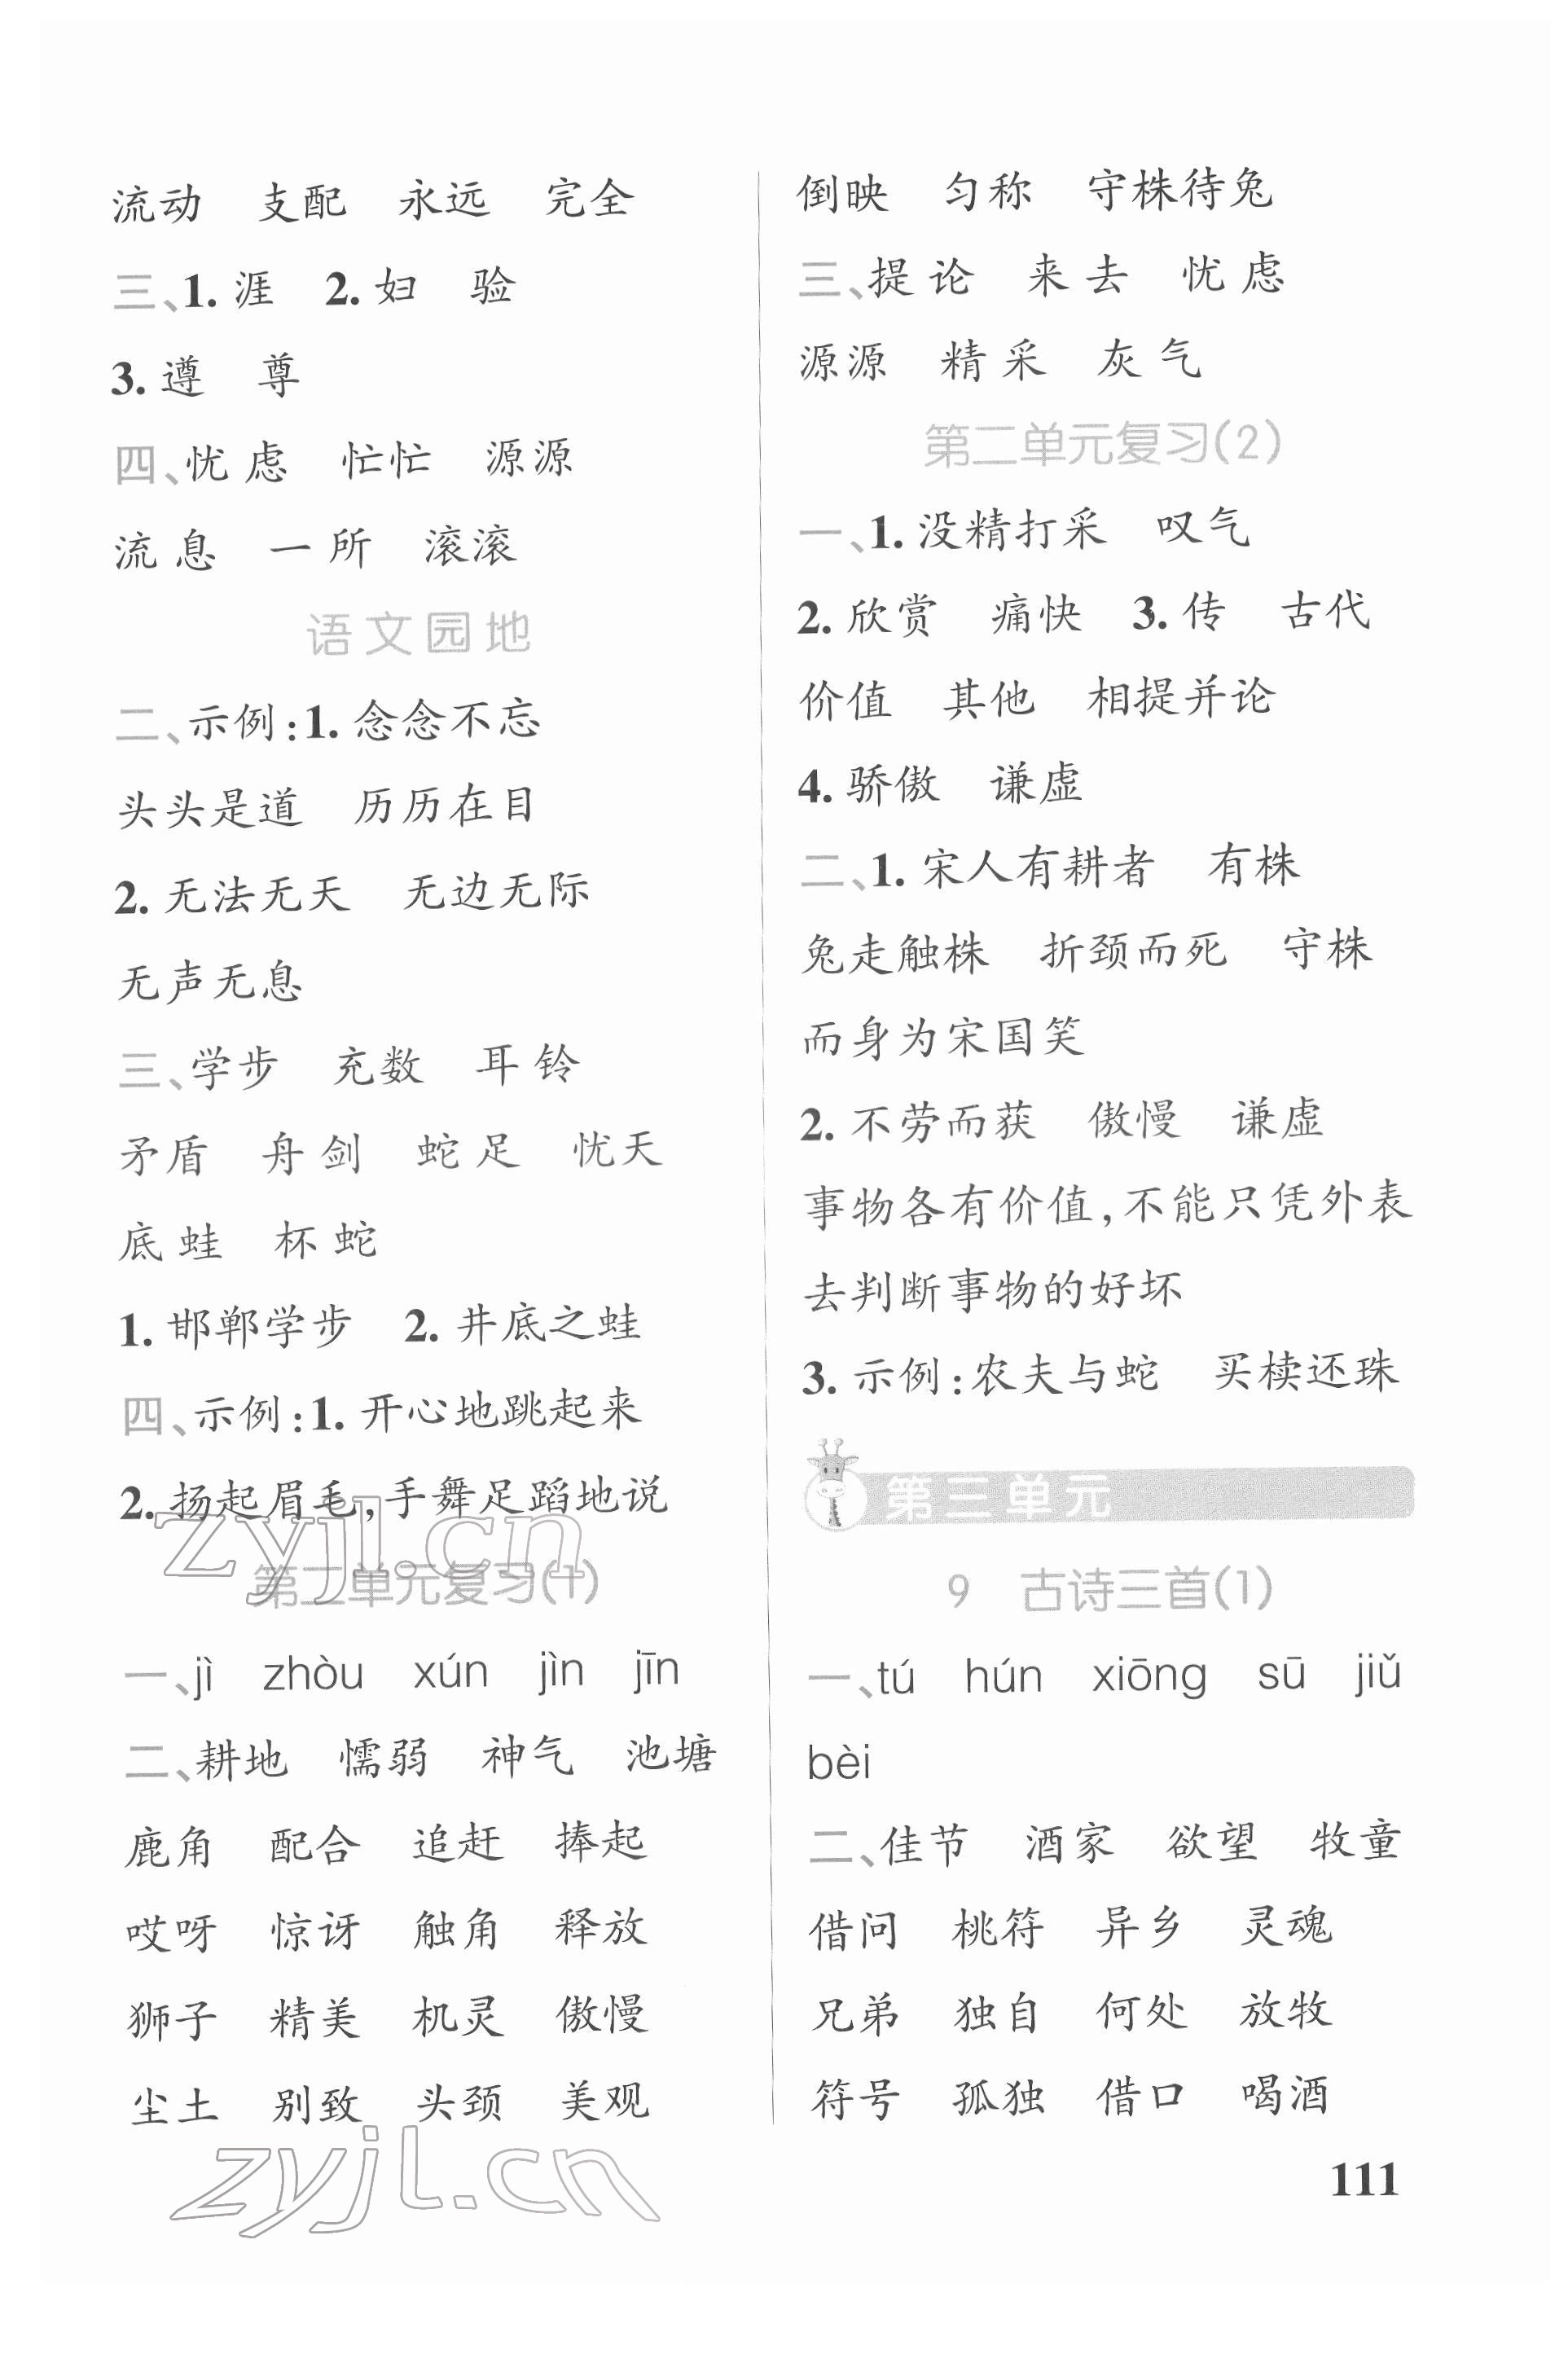 流动 支配 永远 完全
三、1. 涯 2. 妇 验
3. 遵 尊
四、忧 虑 忙忙 源源
流 息 一 所 滚滚
语文园地
二、示例:1. 念念不忘
头头是道 历历在目
2. 无法无天 无边无际
无声无息
三、学步 充数 耳 铃
矛盾 舟 剑 蛇 足 忧天
底 蛙 杯 蛇
1. 邯郸学步 2. 井底之蛙
四、示例:1. 开心地跳起来
2. 扬起眉毛,手舞足蹈地说
zyjl.cn
第二单元复习(1)
一、jì zhòu xún jìn jīn
二、耕地 懦弱 神气 池塘
鹿角 配合 追赶 捧起
哎呀 惊讶 触角 释放
狮子 精美 机灵 傲慢
尘土 别致 头颈 美观
zyjl.cn
倒映 匀称 守株待兔
三、提 论 来 去 忧 虑
源源 精 采 灰 气
第二单元复习(2)
一、1. 没精打采 叹气
2. 欣赏 痛快 3. 传 古代
价值 其他 相提并论
4. 骄傲 谦虚
二、1. 宋人有耕者 有株
兔走触株 折颈而死 守株
而身为宋国笑
2. 不劳而获 傲慢 谦虚
事物各有价值,不能只凭外表
去判断事物的好坏
3. 示例:农夫与蛇 买椟还珠
第三单元
9 古诗三首(1)
一、tú hún xiōng sū jiǔ
bèi
二、佳节 酒家 欲望 牧童
借问 桃符 异乡 灵魂
兄弟 独自 何处 放牧
符号 孤独 借口 喝酒
111